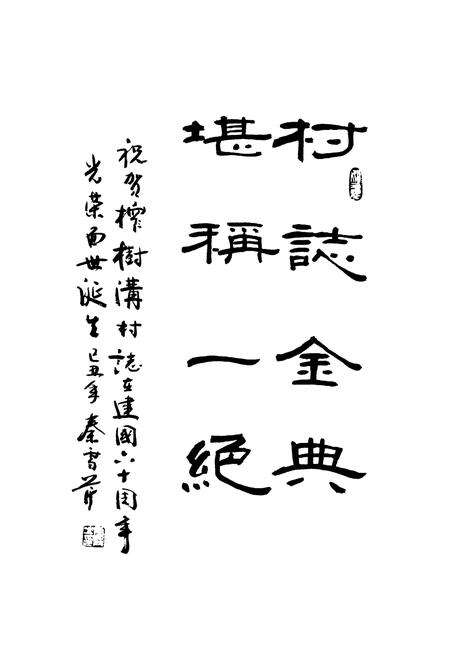 村誌金典
堪稱一絕
祝贺榨樹溝村誌在建國六十周年
光荣面世诞生己丑年秦雪芹